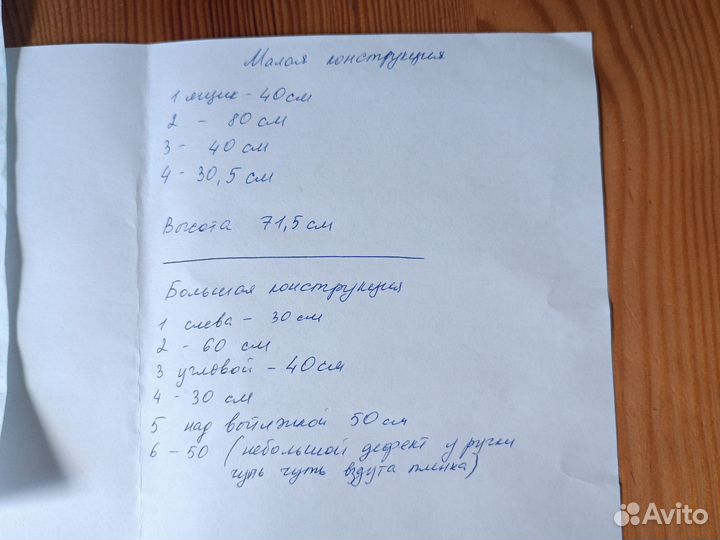 Малая конструкция
1 ящик - 40 см
2 - 80 см
3 - 40 см
4 - 30,5 см
Высота 71,5 см
Большая конструкция
1 слева - 30 см
2 - 60 см
3 угловой - 40 см
4 - 30 см
5 над войляжкой 50 см
6 - 50 (небольшой дефект у ручки
чуть чуть вздута пленка)
Avito